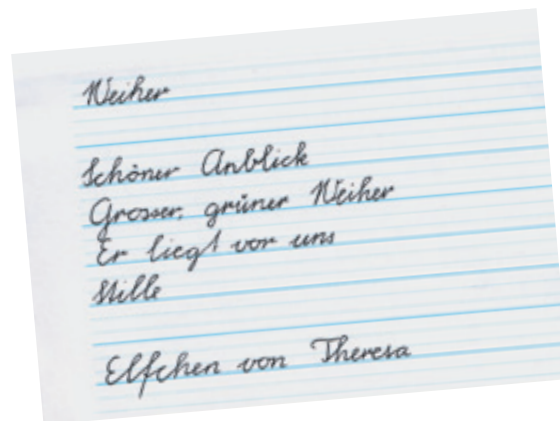 Weiher
Schöner Anblick
Grosser, grüner Weiher
Er liegt vor uns
Stille
Elfchen von Theresa